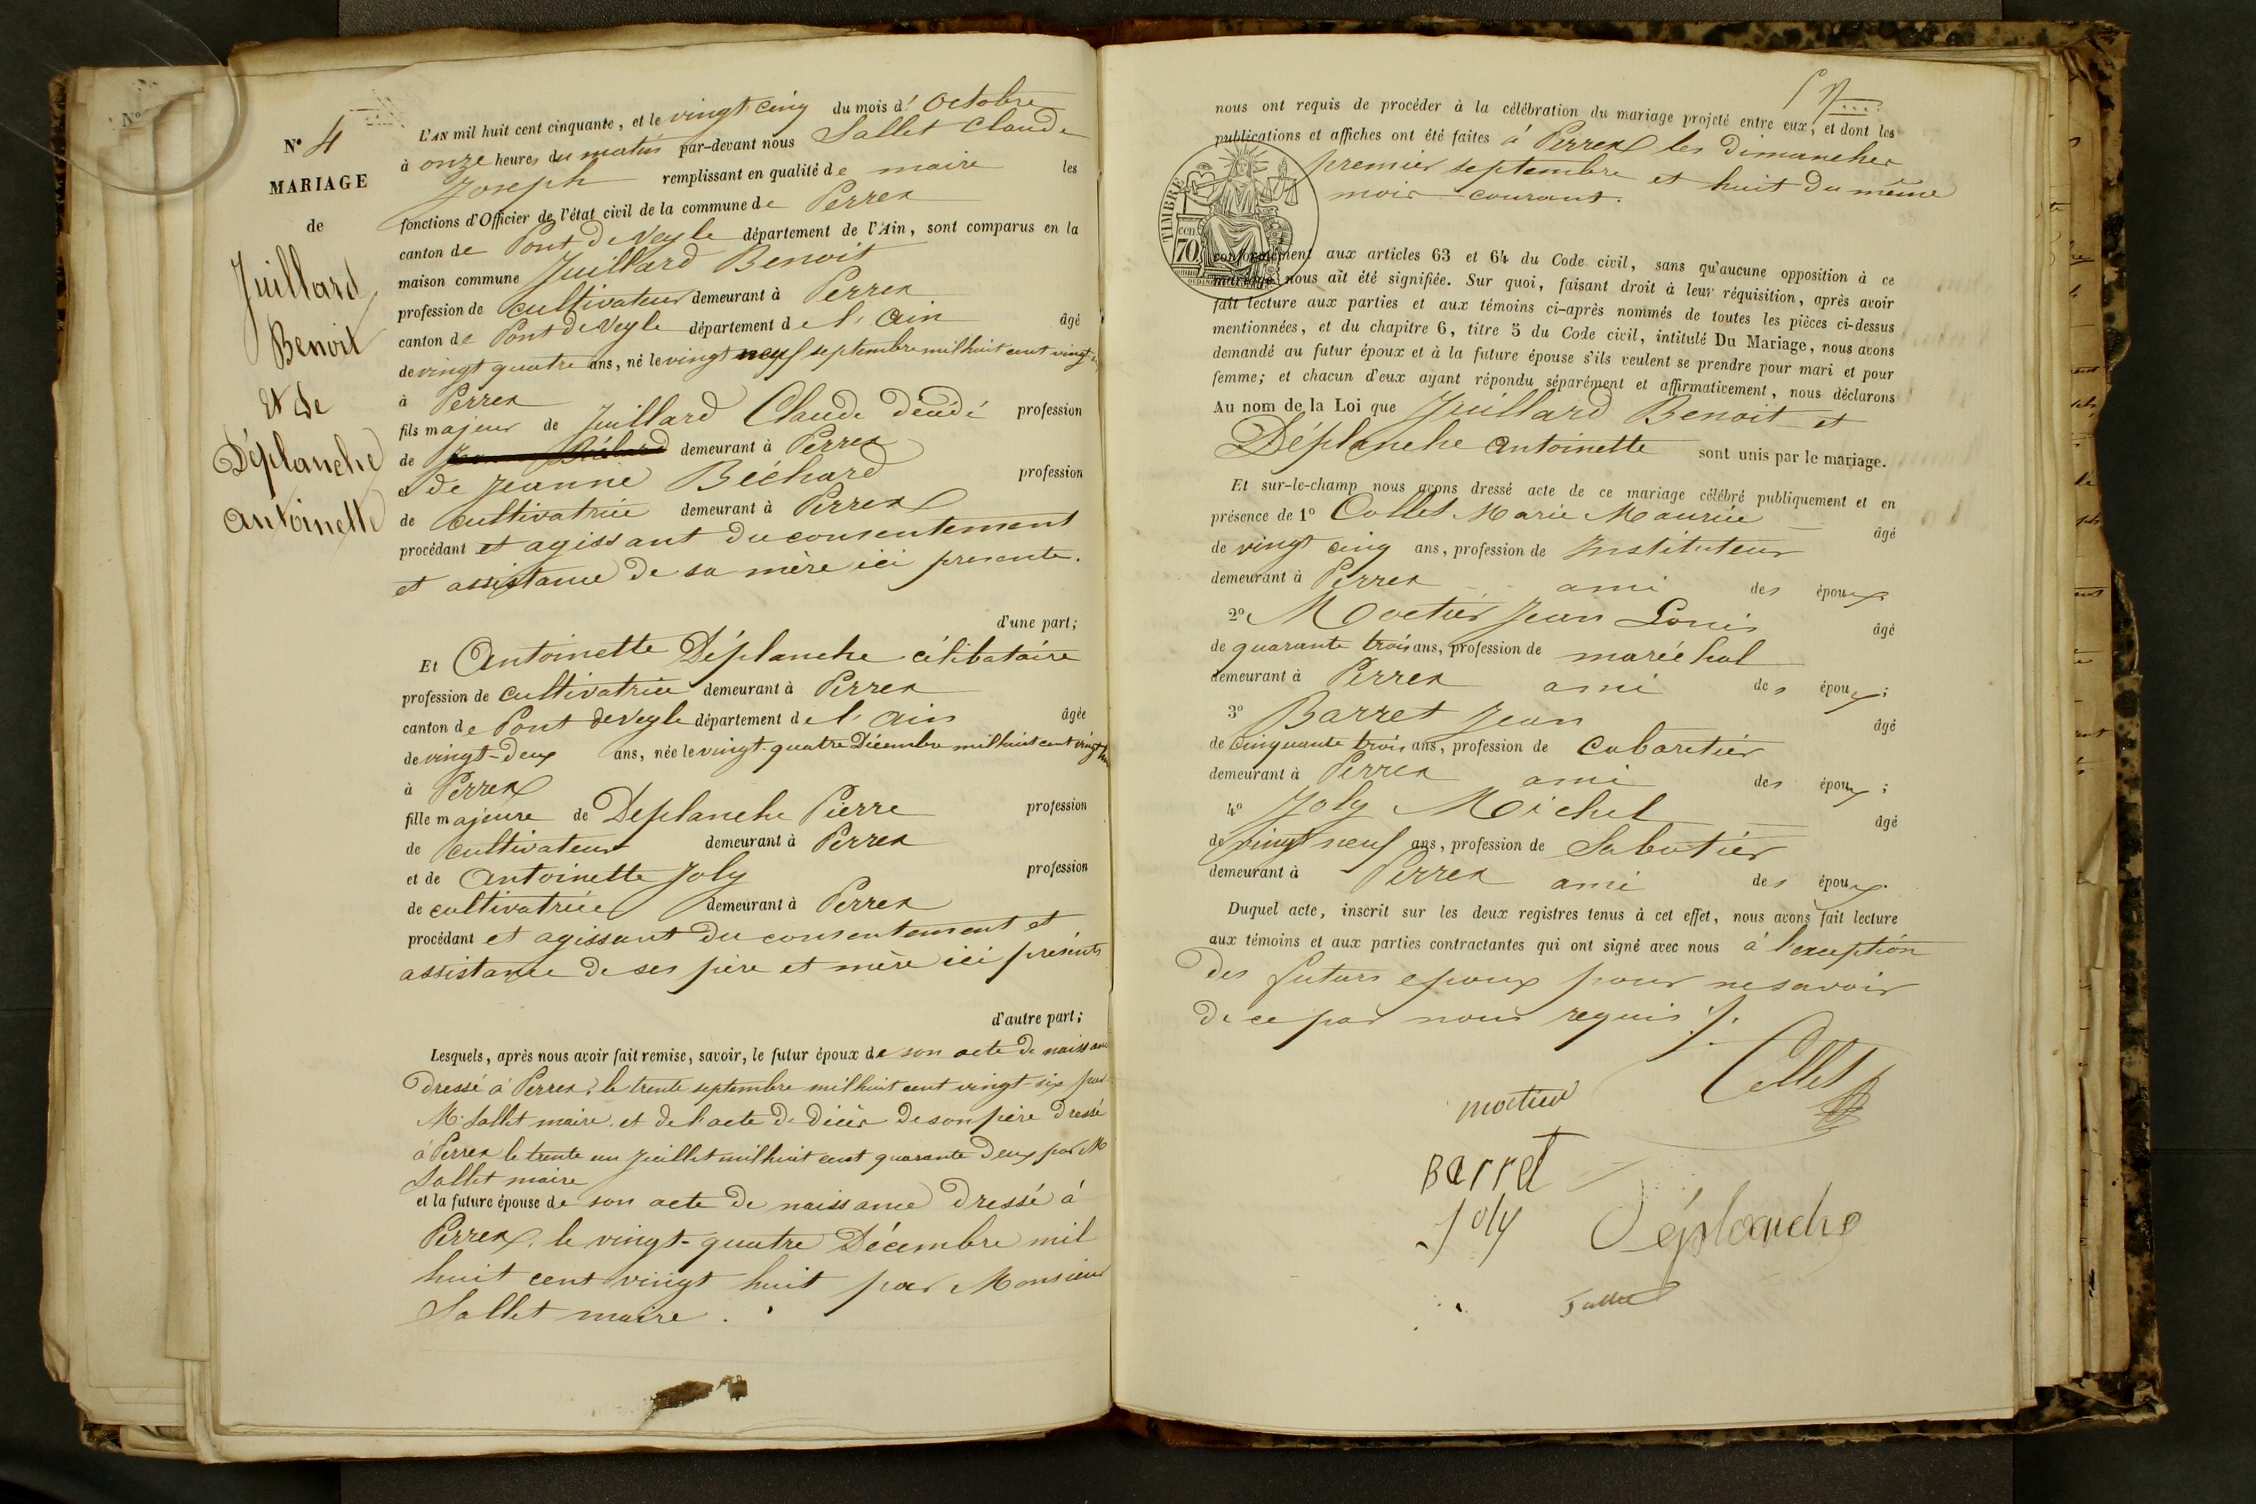 N° 4
MARIAGE
de
Juillard
Benoit
Et de
Déplanche
Antoinette
L'AN mil huit cent cinquante, et le vingt cinq du mois d' Octobre
à onze heures du matin par-devant nous Sallet Claude
Joseph remplissant en qualité de maire les
fonctions d'Officier de l'état civil de la commune de Perrex
canton de Pont de Veyle département de l'Ain, sont comparus en la
maison commune Juillard Benoit
profession de cultivateur demeurant à Perrex
canton de Pont de Veyle département de l'Ain âgé
de vingt quatre ans, né le vingt neuf septembre mil huit cent vingt
à Perrex
fils majeur de Juillard Claude décédé profession
de demeurant à Perrex
et de Jeanne Béchard profession
de cultivatrice demeurant à Perrex
procédant et agissant du consentement
et assistance de sa mère ici présente.
d'une part;
Et Antoinette Déplanche célibataire
profession de cultivatrice demeurant à Perrex
canton de Pont de Veyle département de l'Ain âgée
de vingt-deux ans, née le vingt-quatre Décembre mil huit cent vingt
à Perrex
fille majeure de Déplanche Pierre profession
de cultivateur demeurant à Perrex
et de Antoinette Joly profession
de cultivatrice demeurant à Perrex
procédant et agissant du consentement et
assistance de ses père et mère ici présents
d'autre part;
Lesquels, après nous avoir fait remise, savoir, le futur époux de son acte de naissance
dressé à Perrex le trente septembre mil huit cent vingt-six par
M. Sallet maire et de l'acte de décès de son père dressé
à Perrex le trente un juillet mil huit cent quarante deux par M
Sallet maire
et la future épouse de son acte de naissance dressé à
Perrex, le vingt-quatre Décembre mil
huit cent vingt huit par Monsieur
Sallet maire.
nous ont requis de procéder à la célébration du mariage projeté entre eux, et dont les
publications et affiches ont été faites à Perrex les dimanches
premier septembre et huit du même
mois courant.
TIMBRE
cen.
70
conformément aux articles 63 et 64 du Code civil, sans qu'aucune opposition à ce
mariage nous ait été signifiée. Sur quoi, faisant droit à leur réquisition, après avoir
fait lecture aux parties et aux témoins ci-après nommés de toutes les pièces ci-dessus
mentionnées, et du chapitre 6, titre 5 du Code civil, intitulé Du Mariage, nous avons
demandé au futur époux et à la future épouse s'ils veulent se prendre pour mari et pour
femme; et chacun d'eux ayant répondu séparément et affirmativement, nous déclarons
Au nom de la Loi que Juillard Benoit et
Déplanche Antoinette sont unis par le mariage.
Et sur-le-champ nous avons dressé acte de ce mariage célébré publiquement et en
présence de 1° Collet Marie Maurice âgé
de vingt cinq ans, profession de Instituteur
demeurant à Perrex ami des époux
2° Moctier Jean Louis âgé
de quarante trois ans, profession de maréchal
demeurant à Perrex ami des époux;
3° Barret Jean âgé
de cinquante trois ans, profession de cabaretier
demeurant à Perrex ami des époux;
4° Joly Michel âgé
de vingt neuf ans, profession de Sabotier
demeurant à Perrex ami des époux.
Duquel acte, inscrit sur les deux registres tenus à cet effet, nous avons fait lecture
aux témoins et aux parties contractantes qui ont signé avec nous à l'exception
des futurs époux pour ne savoir
de ce par nous requis ./.
Collet
moctier
Barret
Joly
Déplanche
Sallet